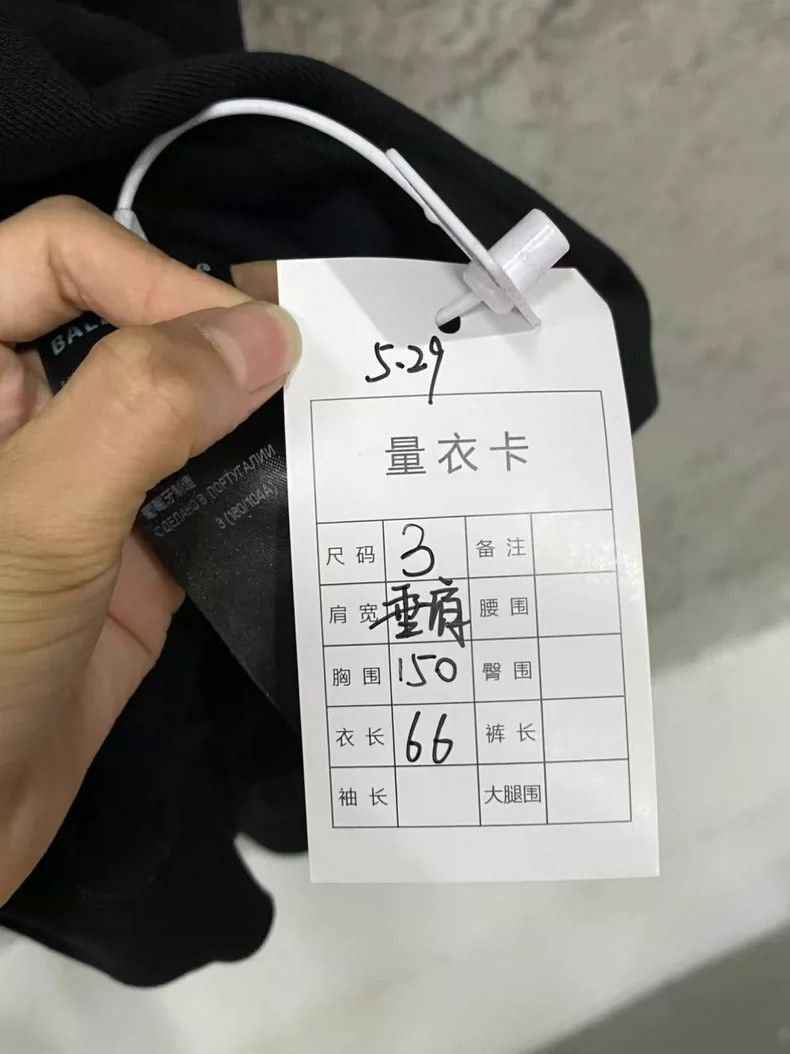 5.29
量衣卡
尺码 3 备注
肩宽 垂肩 腰围
胸围 150 臀围
衣长 66 裤长
袖长 大腿围
BALE
葡萄牙制造
СДЕЛАНО В ПОРТУГАЛИИ
3 (180/104A)